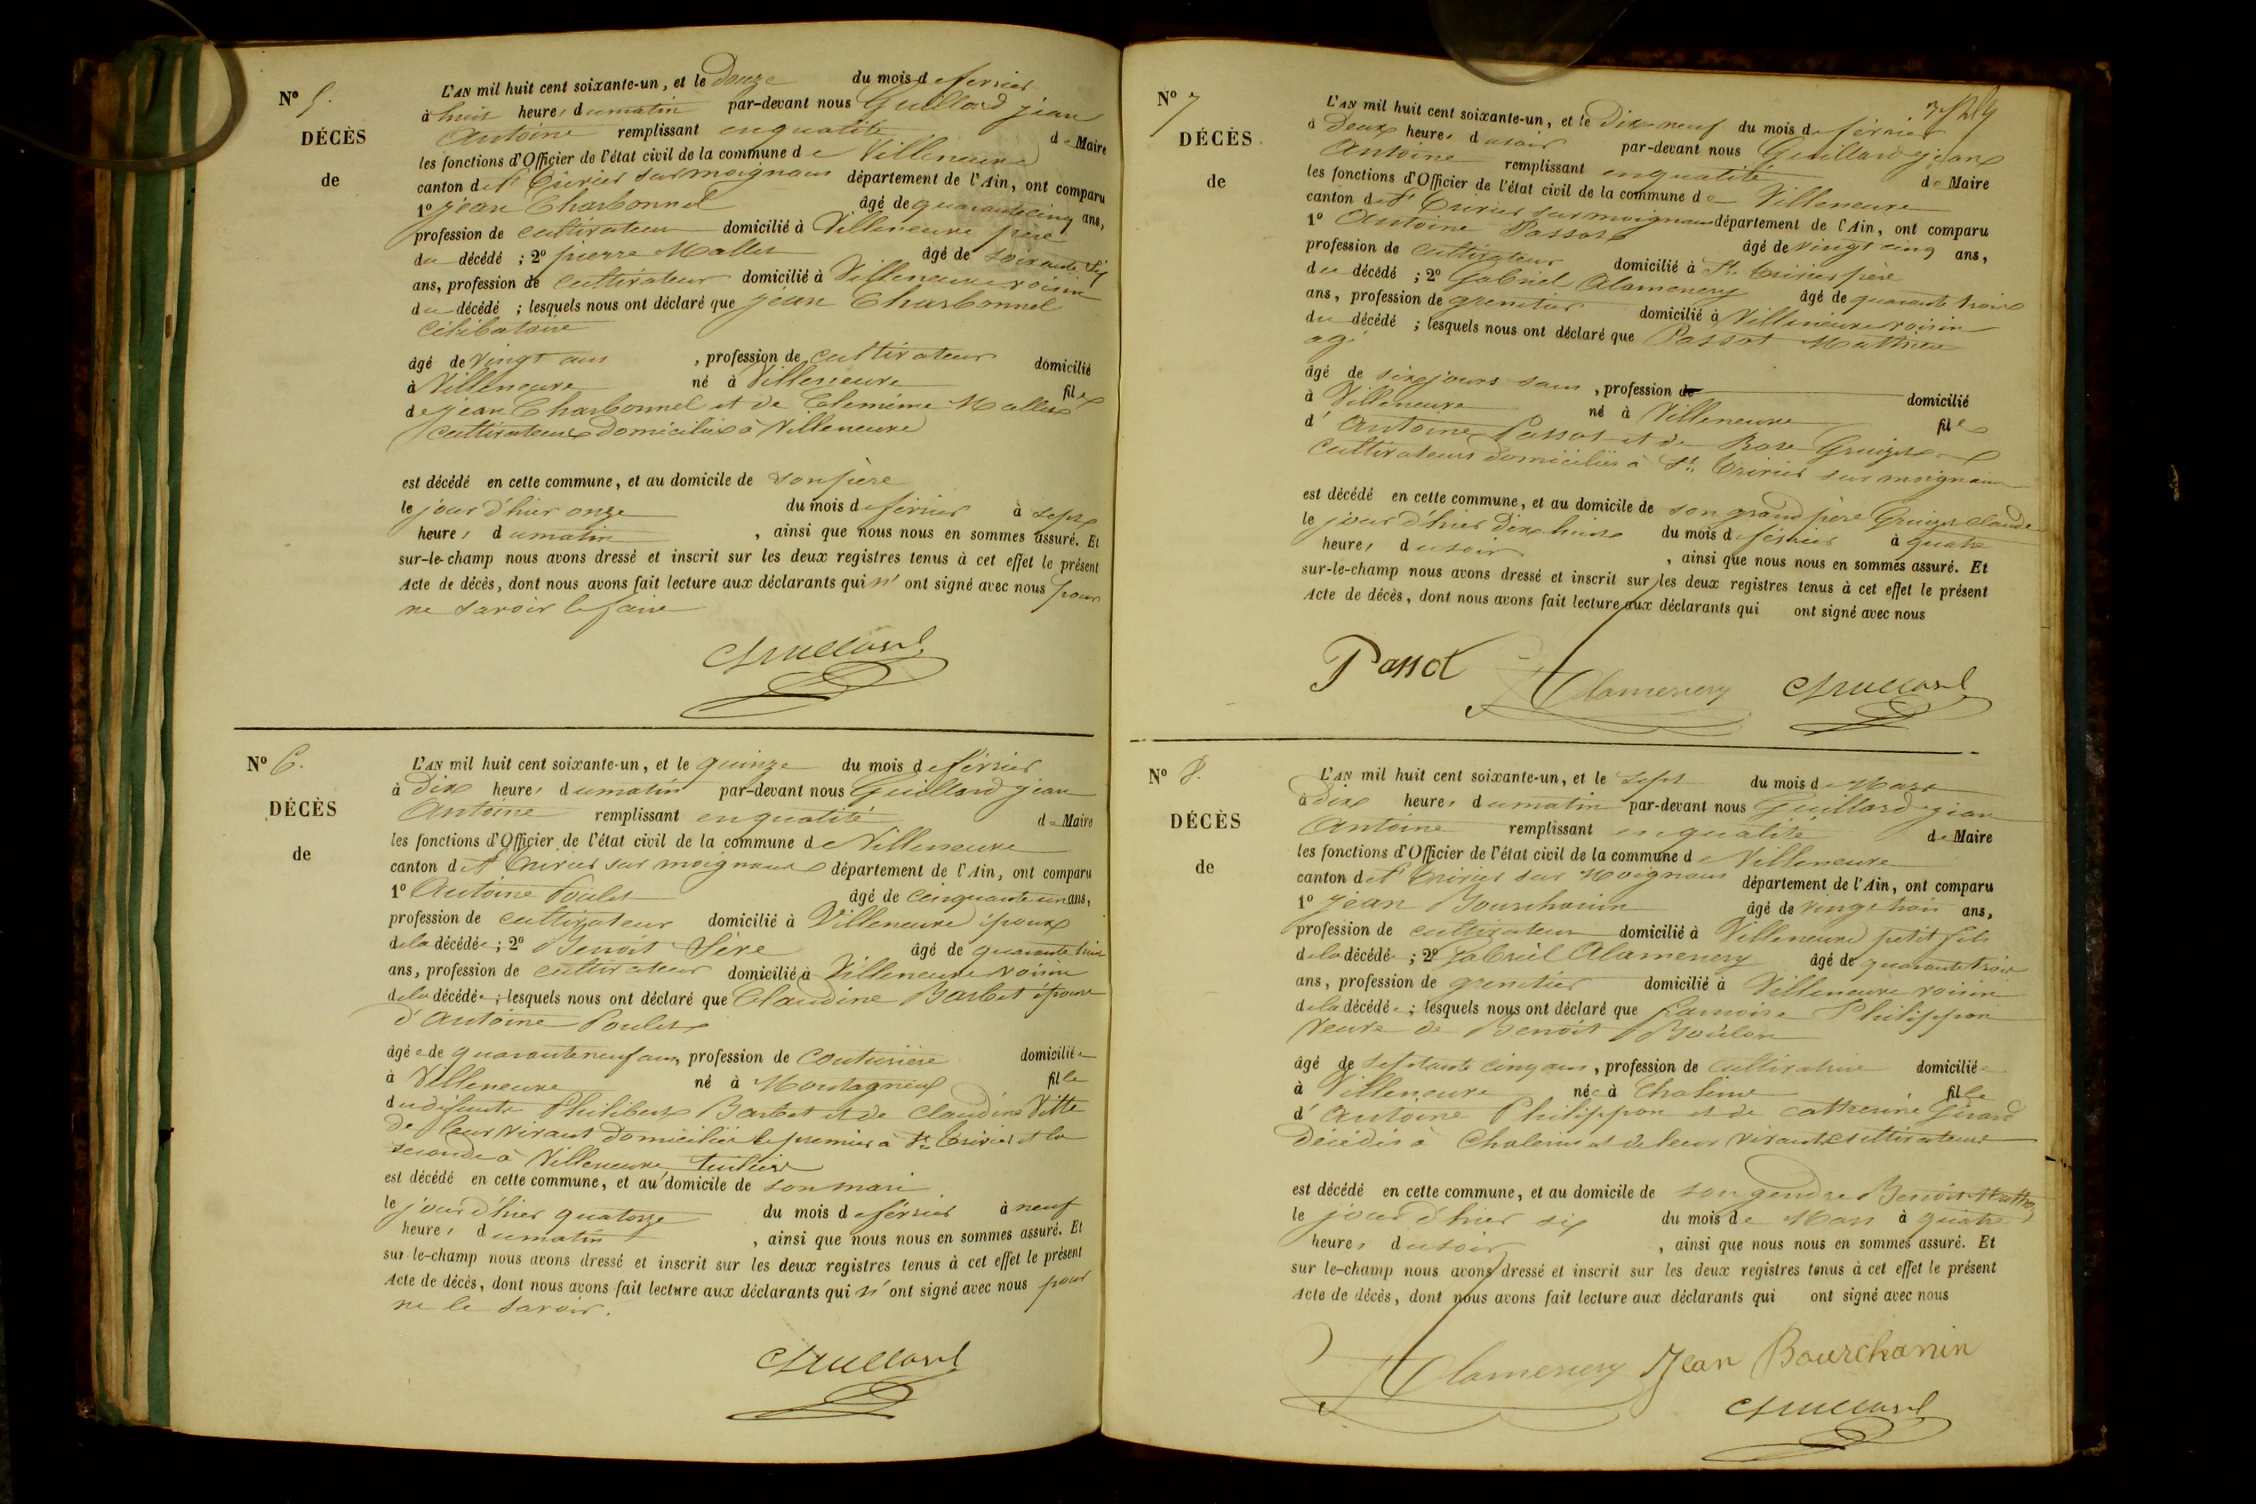 N° 5.
DÉCÈS
de
L'AN mil huit cent soixante-un, et le Douze du mois de février
à huit heures du matin par-devant nous Guillard jean
Antoine remplissant en qualité de Maire
les fonctions d'Officier de l'état civil de la commune de Villeneuve
canton de St Trivier sur moignans département de l'Ain, ont comparu
1° jean Charbonnel âgé de quarante cinq ans,
profession de cultivateur domicilié à Villeneuve père
du décédé ; 2° pierre Mallet âgé de soixante
ans, profession de cultivateur domicilié à Villeneuve voisin
du décédé ; lesquels nous ont déclaré que jean Charbonnel
célibataire
âgé de vingt ans , profession de cultivateur domicilié
à Villeneuve né à Villeneuve fils
de jean Charbonnel et de Mallet
cultivateurs domiciliés à Villeneuve
est décédé en cette commune, et au domicile de son père
le jour d'hier onze du mois de février à sept
heures du matin , ainsi que nous nous en sommes assuré. Et
sur-le-champ nous avons dressé et inscrit sur les deux registres tenus à cet effet le présent
Acte de décès, dont nous avons fait lecture aux déclarants qui n'ont signé avec nous pour
ne savoir le faire
Guillard
N° 6.
DÉCÈS
de
L'AN mil huit cent soixante-un, et le quinze du mois de février
à Dix heures du matin par-devant nous Guillard jean
Antoine remplissant en qualité de Maire
les fonctions d'Officier de l'état civil de la commune de Villeneuve
canton de St Trivier sur moignans département de l'Ain, ont comparu
1° Antoine Poulet âgé de cinquante un ans,
profession de cultivateur domicilié à Villeneuve époux
de la décédée ; 2° Benoit Sève âgé de quarante trois
ans, profession de cultivateur domicilié à Villeneuve voisin
de la décédée ; lesquels nous ont déclaré que Claudine Barbet épouse
d'Antoine Poulet
âgée de quarante neuf ans, profession de couturière domiciliée
à Villeneuve né à Montagneux fille
du défunts Philibert Barbet et de Claudine Vitte
de leur vivant domiciliés le premier à St Trivier et la
seconde à Villeneuve
est décédé en cette commune, et au domicile de son mari
le jour d'hier quatorze du mois de février à neuf
heures du matin , ainsi que nous nous en sommes assuré. Et
sur le-champ nous avons dressé et inscrit sur les deux registres tenus à cet effet le présent
Acte de décès, dont nous avons fait lecture aux déclarants qui n'ont signé avec nous pour
ne le savoir.
Guillard
N° 7
DÉCÈS
de
L'AN mil huit cent soixante-un, et le Dix neuf du mois de février
à Deux heures du soir par-devant nous Guillard jean
Antoine remplissant en qualité de Maire
les fonctions d'Officier de l'état civil de la commune de Villeneuve
canton de St Trivier sur moignans département de l'Ain, ont comparu
1° Antoine Passot âgé de vingt cinq ans,
profession de cultivateur domicilié à St Trivier père
du décédé ; 2° Gabriel Alamenery âgé de quarante trois
ans, profession de grenetier domicilié à Villeneuve voisin
du décédé ; lesquels nous ont déclaré que Passot Mathieu
agé
âgé de six jours sans , profession de domicilié
à Villeneuve né à Villeneuve fils
d'Antoine Passot et de Rose
cultivateurs domiciliés à St Trivier sur moignans
est décédé en cette commune, et au domicile de son grand père Claude
le jour d'hier Dix huit du mois de février à quatre
heures du soir , ainsi que nous nous en sommes assuré. Et
sur-le-champ nous avons dressé et inscrit sur les deux registres tenus à cet effet le présent
Acte de décès, dont nous avons fait lecture aux déclarants qui ont signé avec nous
Passot Alamenery Guillard
N° 8.
DÉCÈS
de
L'AN mil huit cent soixante-un, et le sept du mois de Mars
à dix heures du matin par-devant nous Guillard jean
Antoine remplissant en qualité de Maire
les fonctions d'Officier de l'état civil de la commune de Villeneuve
canton de St Trivier sur Moignans département de l'Ain, ont comparu
1° jean Bourchanin âgé de vingt trois ans,
profession de cultivateur domicilié à Villeneuve petit fils
de la décédée ; 2° Gabriel Alamenery âgé de quarante trois
ans, profession de grenetier domicilié à Villeneuve voisin
de la décédée ; lesquels nous ont déclaré que Philippon
veuve de Benoit
âgé de septante cinq ans, profession de cultivatrice domiciliée
à Villeneuve née à Chaleins fille
d'Antoine Philippon et de Catherine Girard
décédés à Chaleins et de leur vivant cultivateurs
est décédé en cette commune, et au domicile de son gendre Benoit
le jour d'hier six du mois de Mars à quatre
heures du soir , ainsi que nous nous en sommes assuré. Et
sur le-champ nous avons dressé et inscrit sur les deux registres tenus à cet effet le présent
Acte de décès, dont nous avons fait lecture aux déclarants qui ont signé avec nous
Alamenery Jean Bourchanin
Guillard